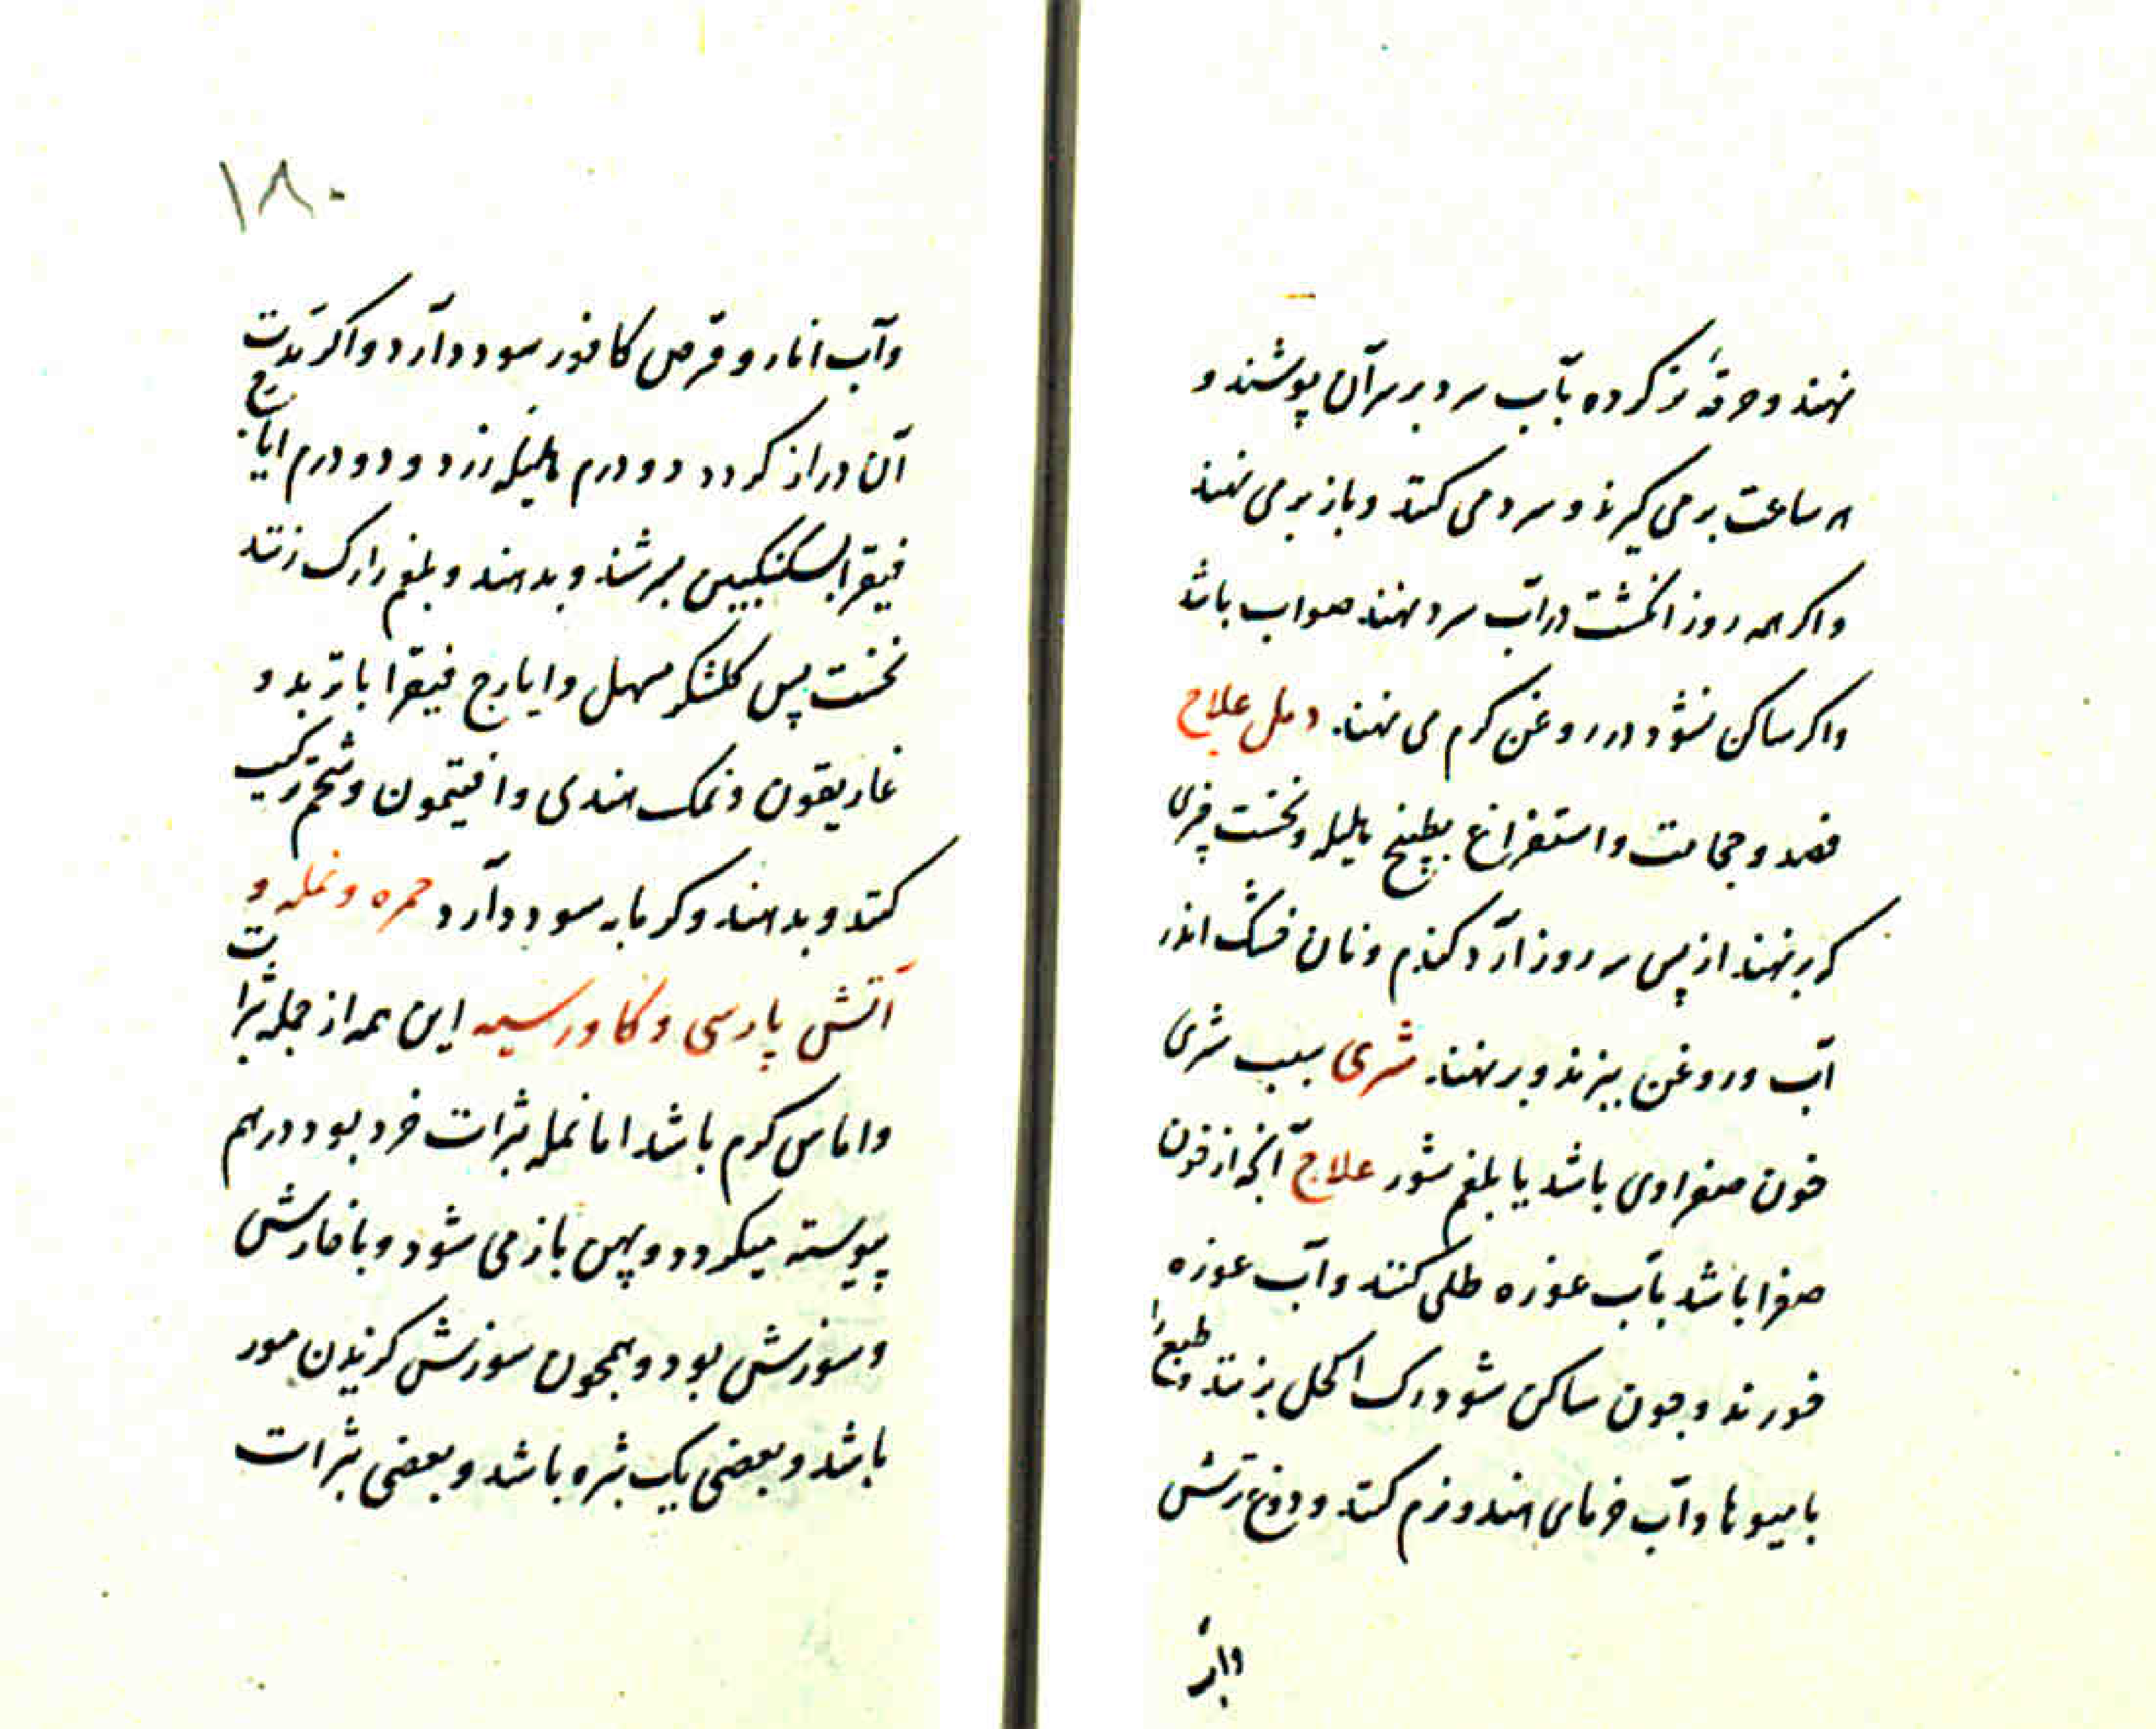 نهند و خرقهٔ تر کرده بآب سرد بر سر آن پوشند و
هر ساعت بر می کیرند و سرد می کنند و باز بر می نهند
و اکر همه روز انکشت در آب سرد نهند صواب باشد
و اکر ساکن نشود در روغن کرم می نهند. دمل علاج
فصد و حجامت و استفراغ بطبیخ هلیله و نخست چیزی
که بر نهند از پس سه روز آرد کندم و نان خشک اندر
آب و روغن بپزند و بر نهند. شری سبب شری
خون صفراوی باشد یا بلغم شور علاج آنچه از خون
صفرا باشد بآب غوره طلی کنند و آب غوره
خورند و چون ساکن شود رک اکحل بزنند و طبع را
با میوها و آب خرمای هندو نرم کنند و دوغ ترش
وآب
۱۸۰
وآب انار و قرص کافور سود دارد و اکر مدت
آن دراز کردد دو درم هلیله زرد و دو درم ایارج
فیقرا بسکنکبین بسرشند و بدهند و بلغم را رک زنند
نخست پس کلشکر مسهل و ایارج فیقرا با تربد و
غاریقون و نمک هندی و افتیمون و شحم ترکیب
کنند و بدهند و کرمابه سود دارد حمره و نمله و
آتش پارسی و کاورسیه این همه از جمله بثرات
و اماس کرم باشد اما نمله بثرات خرد بود درهم
پیوسته میکردد و پهن باز می شود و با خارش
و سوزش بود و همچون سوزش کزیدن مور
باشد و بعضی یک بثره باشد و بعضی بثرات